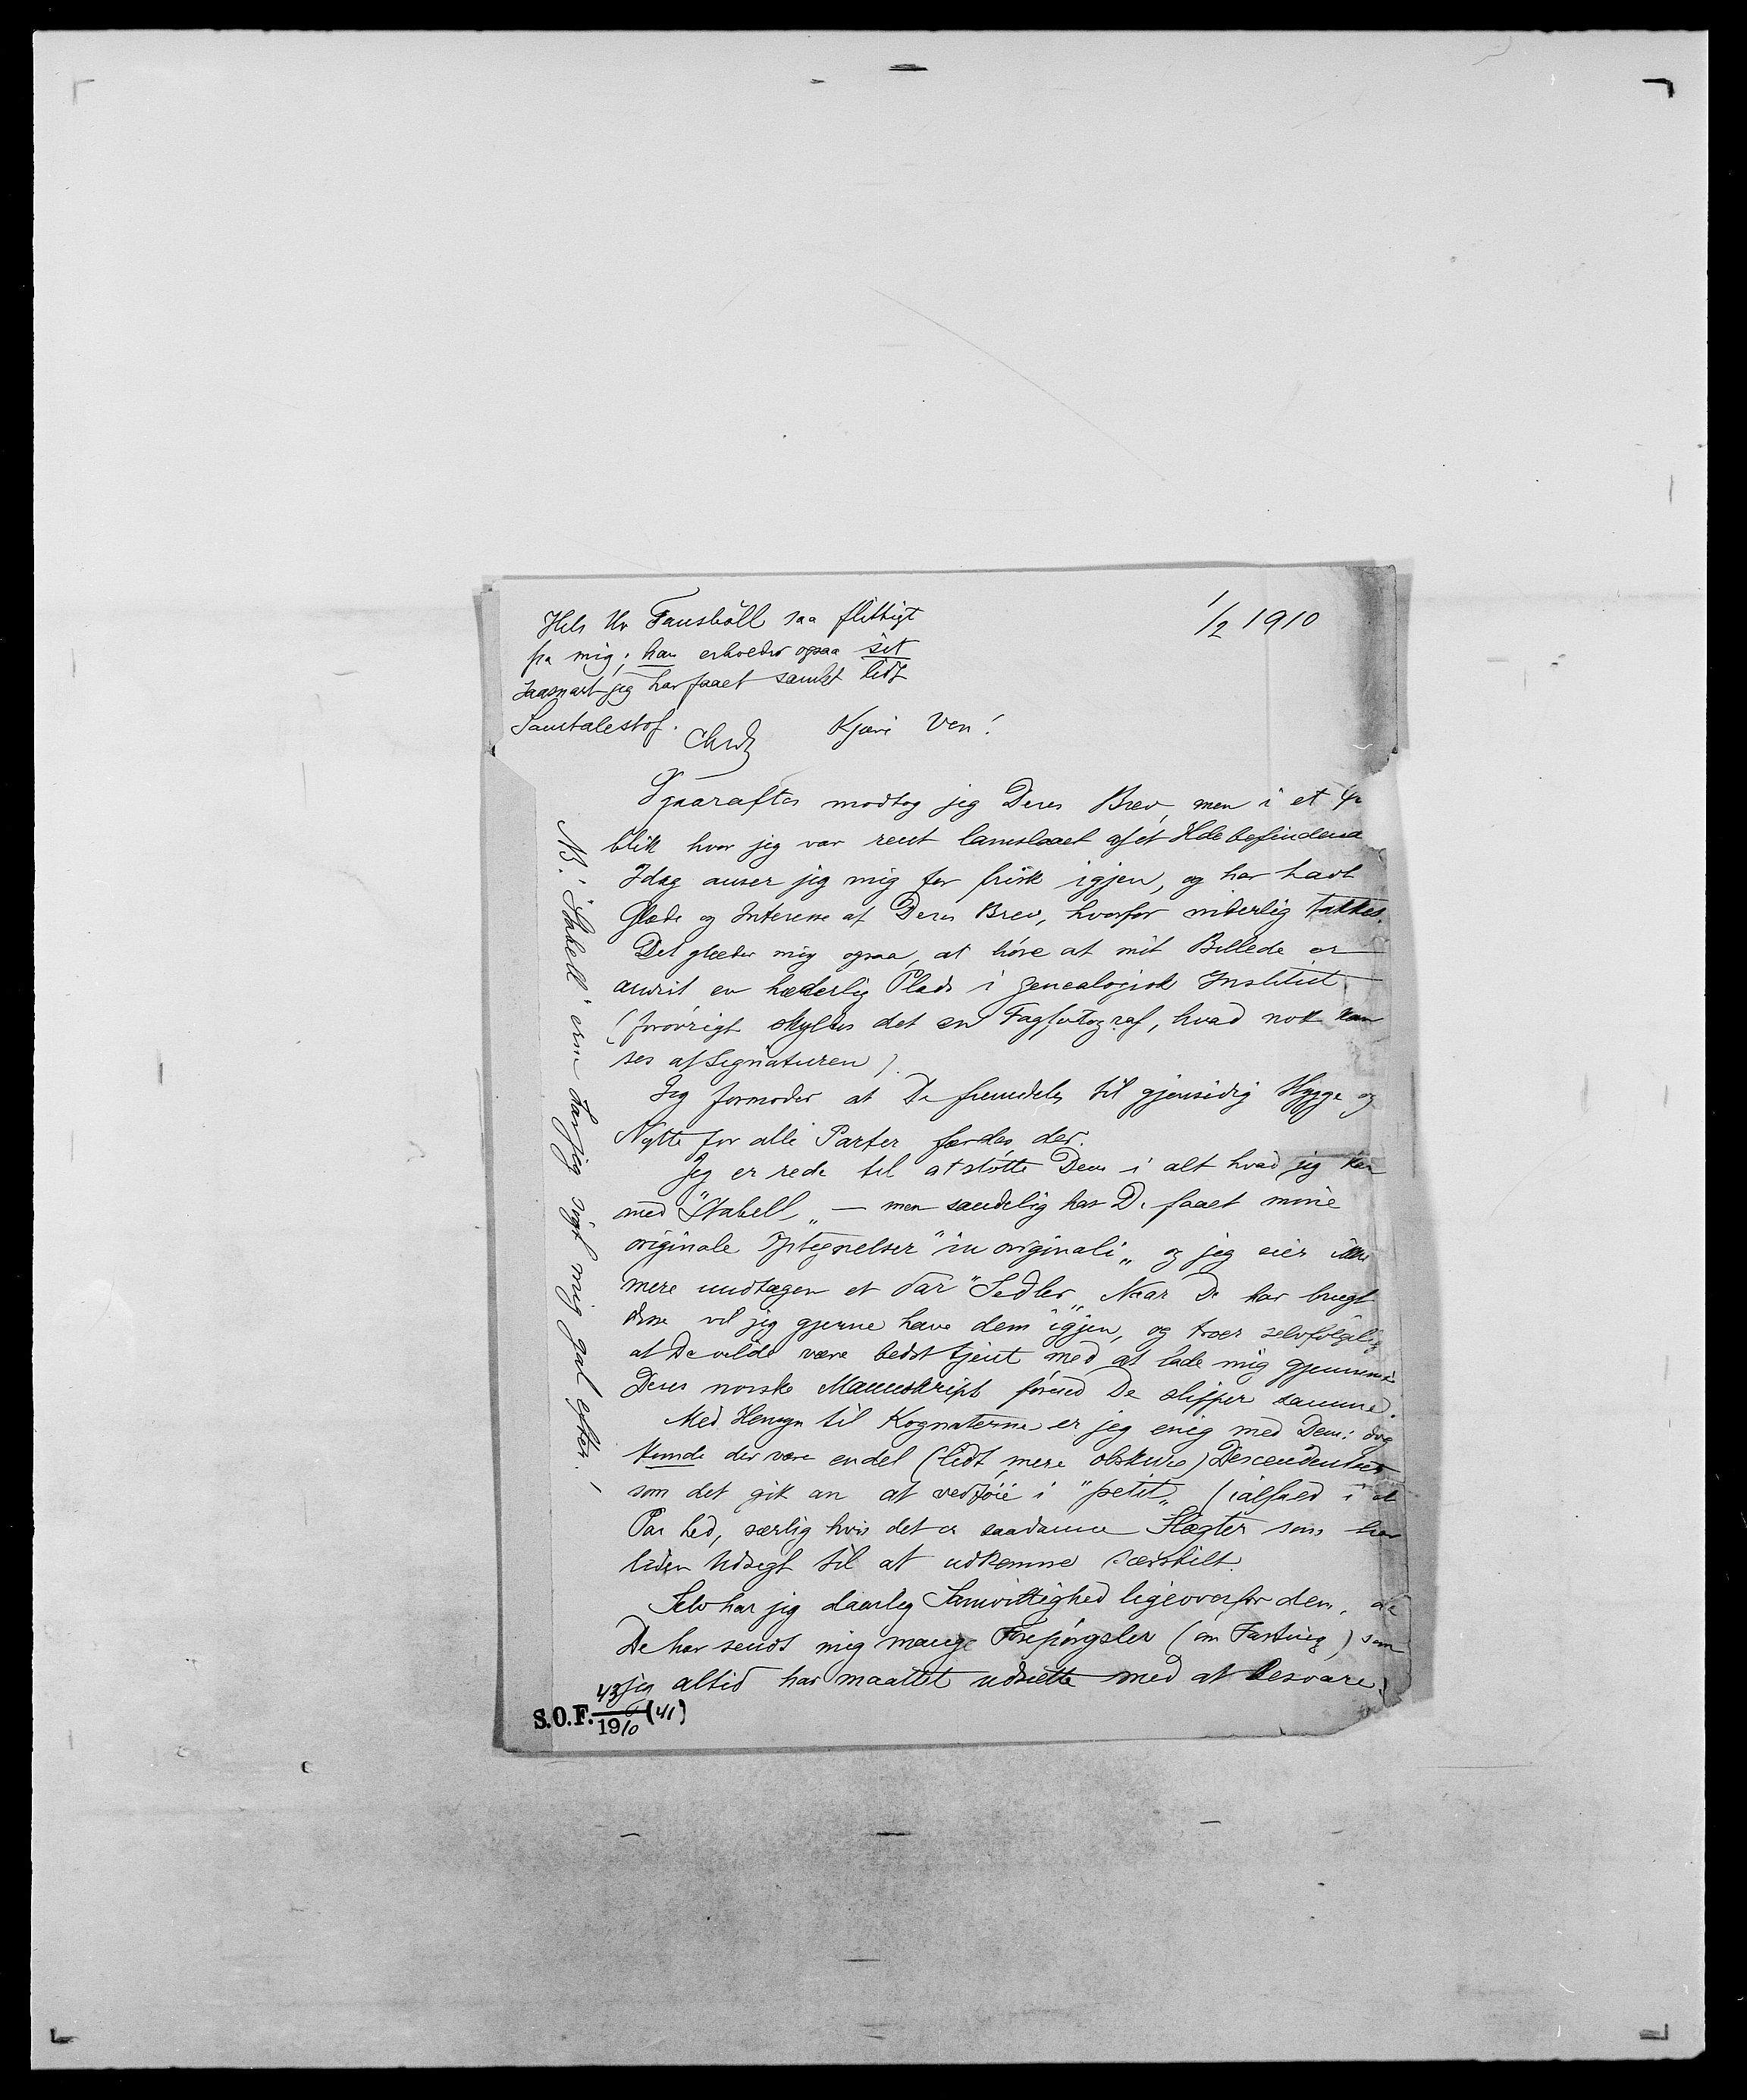 1/2 1910
Hils Hr Fausböll saa flittigt
fra mig; han erholder ogsaa sit
saasnart jeg har faaet samlet lidt
Samtalestof.
Kjære Ven!
Igaaraftes modtog jeg Deres Brev, men i et
blik hvor jeg var rent lamslaaet af et Ildebefindende
Idag anser jeg mig for frisk igjen, og har havt
Glæde og Interesse af Deres Brev, hvorfor inderlig takkes.
Det glæder mig ogsaa, at höre at mit Billede er
anvist en hæderlig Plads i genealogisk Institut
(forövrigt skyldes det en Fagfotograf, hvad nok kan
ses af Signaturen).
Jeg formoder at De fremdeles til gjensidig Hygge og
Nytte for alle Parter færdes der.
Jeg er rede til at stötte Dem i alt hvad jeg kan
med "Stabell„ — men sandelig har De faaet mine
originale Optegnelser "in originali„ og jeg eier ikke
mere undtagen et Par "Sedler„ Naar De har brugt
disse vil jeg gjerne have dem igjen, og troer selvfölgelig
at De vilde være bedst tjent med at lade mig gjennem
Deres norske Manuskript förend De slipper samme.
Med Hensyn til Kognaterne er jeg enig med Dem: dog
kunde der være endel (lidt mere obskure) Descendenter
som det gik an at vedföie i "petit„ (ialfald i et
Par Led, særlig hvis det er saadanne Slægter som har
liden Udsigt til at udkomme særskilt.
Selv har jeg daarlig Samvittighed ligeoverfor dem, da
De har sendt mig mange Forespörgsler (om Fasting) som
jeg altid har maattet udsætte med at besvare.
NB. "Stabell" har jeg sigt mig gal efter. —
S.O.F. 43/1910 (41)